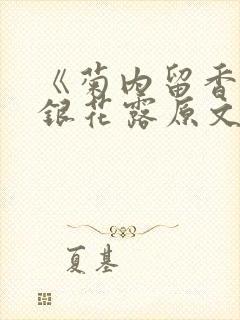 《菊内留香
银花露原文
夏基